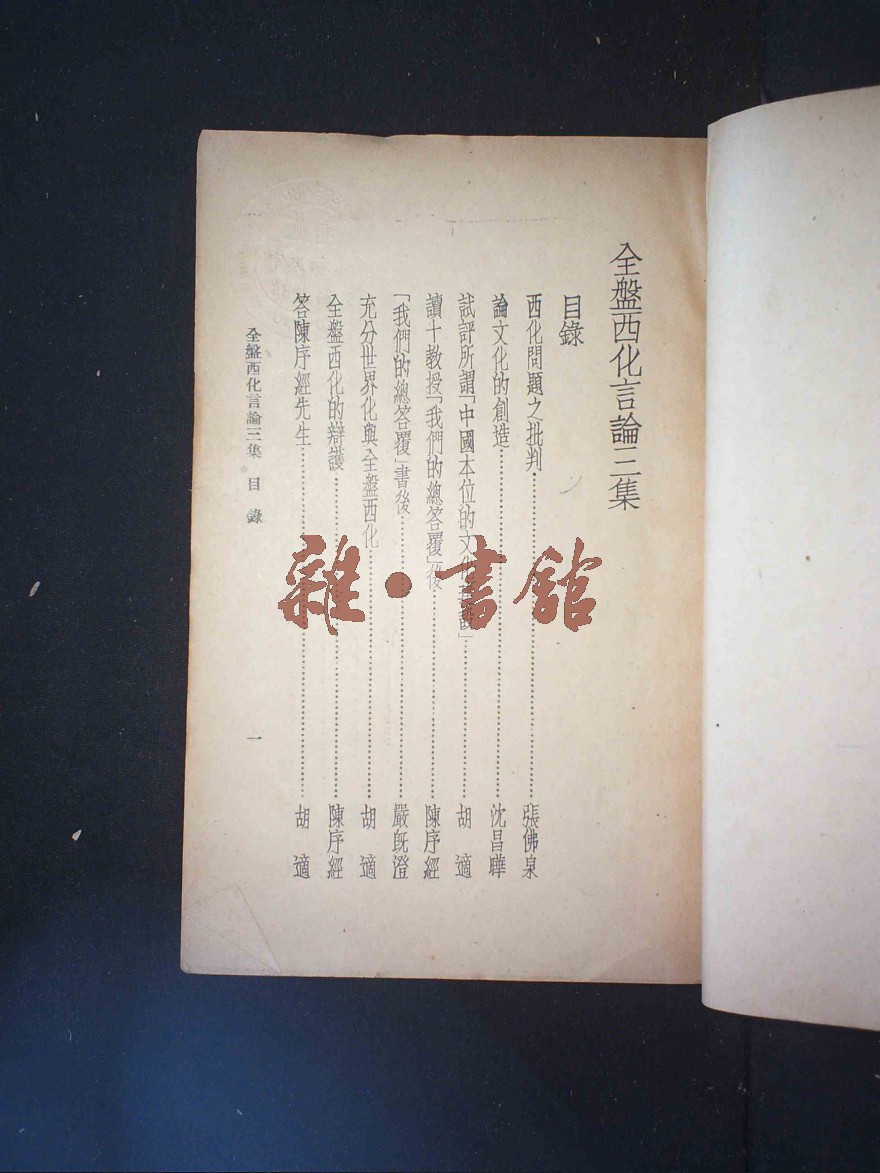 全盤西化言論三集
目錄
西化問題之批判……張佛泉
論文化的創造……沈昌曄
試評所謂「中國本位的文化建設」……胡適
讀十教授「我們的總答覆」後……陳序經
「我們的總答覆」書後……嚴旣澄
充分世界化與全盤西化……胡適
全盤西化的辯護……陳序經
答陳序經先生……胡適
全盤西化言論三集 目錄 一
雜·書館